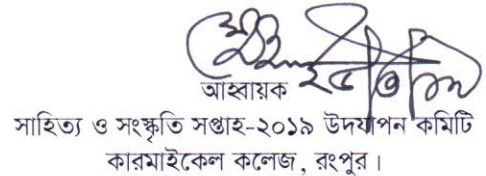 আহ্বায়ক
সাহিত্য ও সংস্কৃতি সপ্তাহ-২০১৯ উদযাপন কমিটি
কারমাইকেল কলেজ, রংপুর।